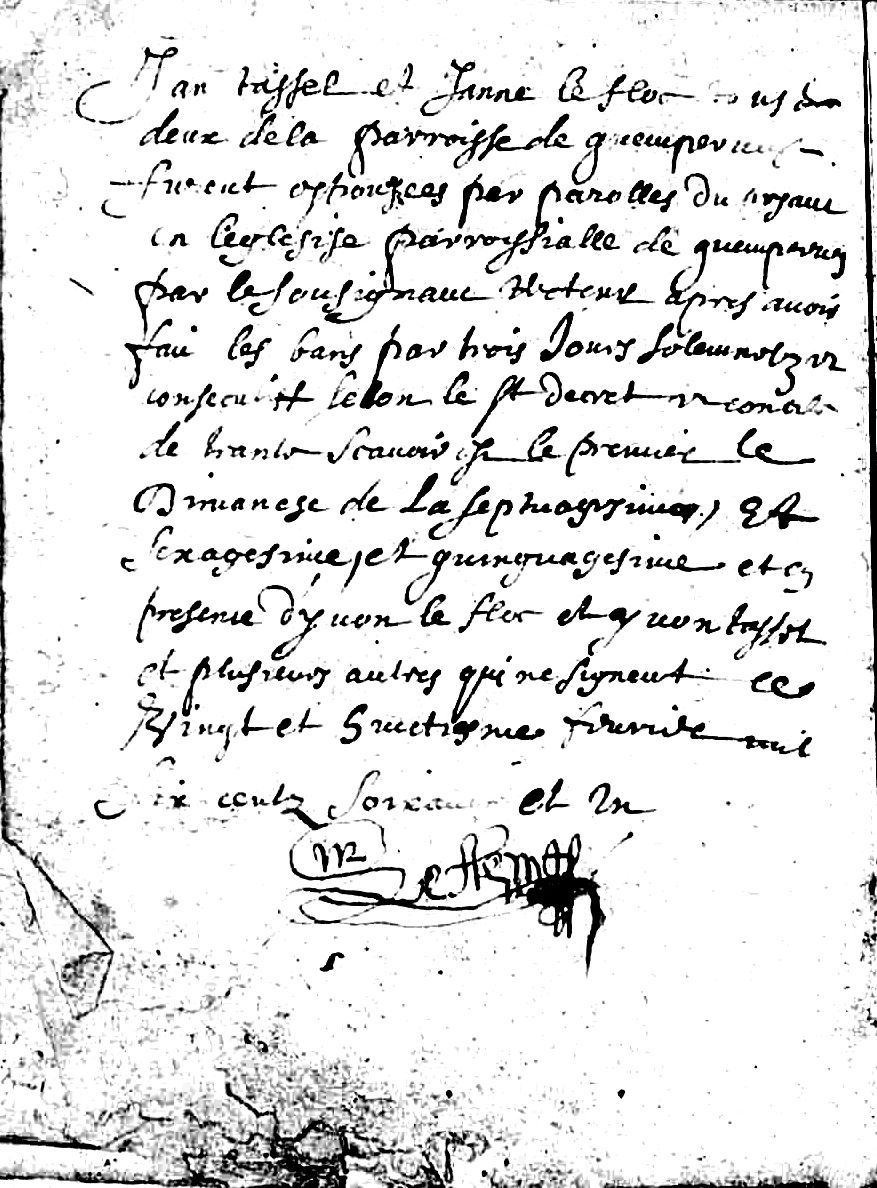 Jan tassel et Janne le floc tous
deux de la parroisse de guemperven
furent espousees par parolles du
en leglesise parroissialle de guemperven
par le sousignant Recteur apres avoir
fait les bans par trois Jours solemnelz
consecutiff selon le st decret concile
de trante scavoir est le premier le
Dimanche de La septuagesime, Et
sexagesime, et quinquagesime et en
presence dyvon le floc et yvon tassel
et plusieurs autres qui ne signent ce
vingt et huictiesme fevrier mil
six centz soixante et un